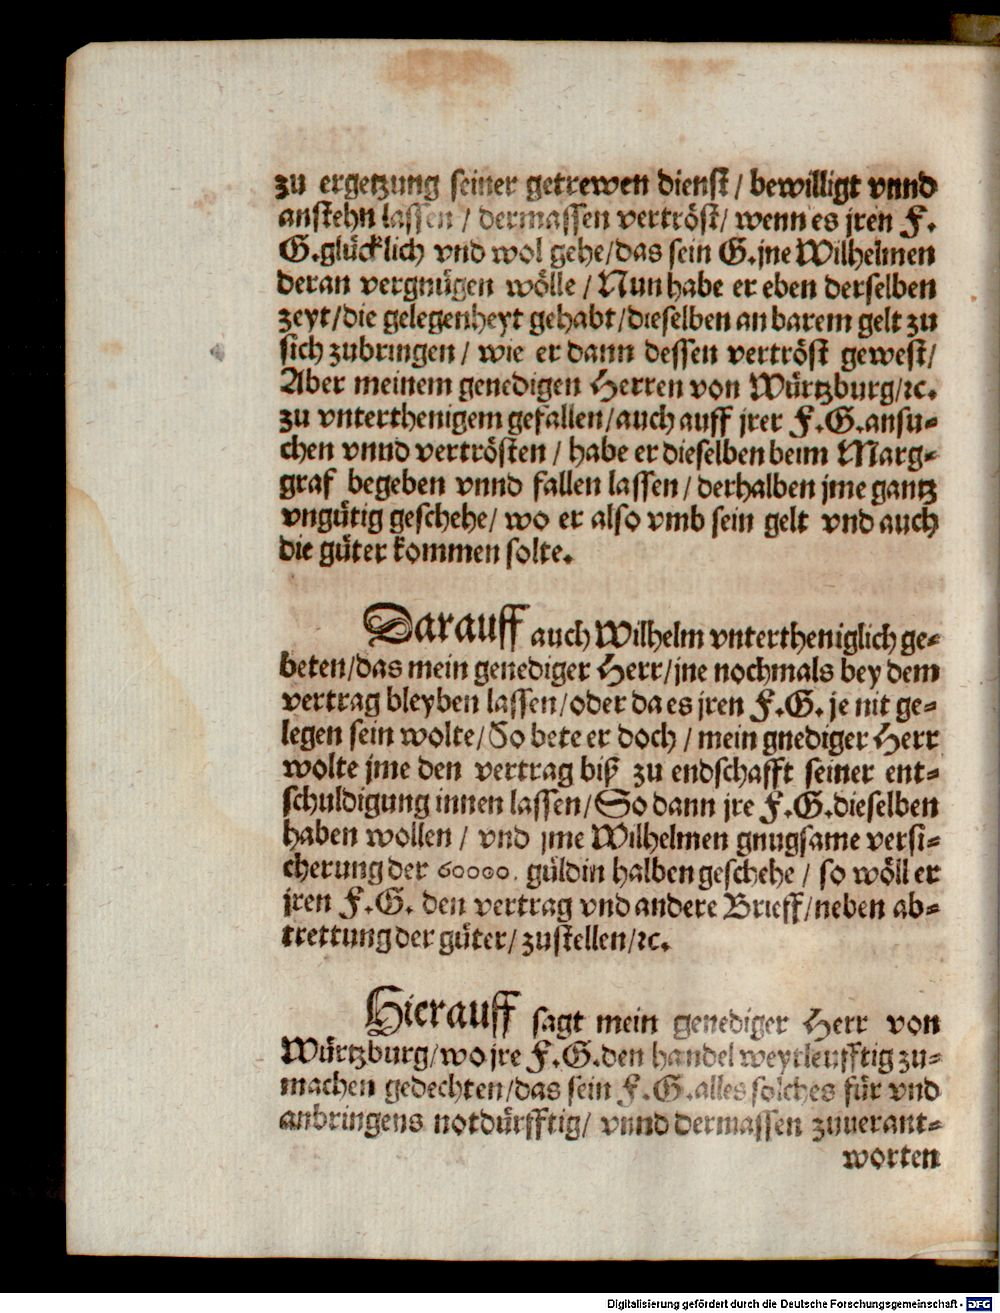 zu ergetzung seiner getrewen dienst / bewilligt vnnd
anstehn lassen / dermassen vertröst / wenn es jren F.
G. glücklich vnd wol gehe / das sein G. jne Wilhelmen
deran vergnügen wölle / Nun habe er eben derselben
zeyt / die gelegenheyt gehabt / dieselben an barem gelt zu
sich zubringen / wie er dann dessen vertröst gewest /
Aber meinem genedigen Herren von Würtzburg / ꝛc.
zu vnterthenigem gefallen / auch auff jrer F. G. ansu-
chen vnnd vertrösten / habe er dieselben beim Marg-
graf begeben vnnd fallen lassen / derhalben jme gantz
vngütig geschehe / wo er also vmb sein gelt vnd auch
die güter kommen solte.
Darauff auch Wilhelm vntertheniglich ge-
beten / das mein genediger Herr / jne nochmals bey dem
vertrag bleyben lassen / oder da es jren F. G. je nit ge-
legen sein wolte / So bete er doch / mein gnediger Herr
wolte jme den vertrag biß zu endschafft seiner ent-
schuldigung innen lassen / So dann jre F. G. dieselben
haben wollen / vnd jme Wilhelmen gnugsame versi-
cherung der 60000. güldin halben geschehe / so wöll er
jren F. G. den vertrag vnd andere Brieff / neben ab-
trettung der güter / zustellen / ꝛc.
Hierauff sagt mein genediger Herr von
Würtzburg / wo jre F. G. den handel weytleufftig zu-
machen gedechten / das sein F. G. alles solches für vnd
anbringens notdürfftig / vnnd dermassen zuuerant-
worten
Digitalisierung gefördert durch die Deutsche Forschungsgemeinschaft - DFG